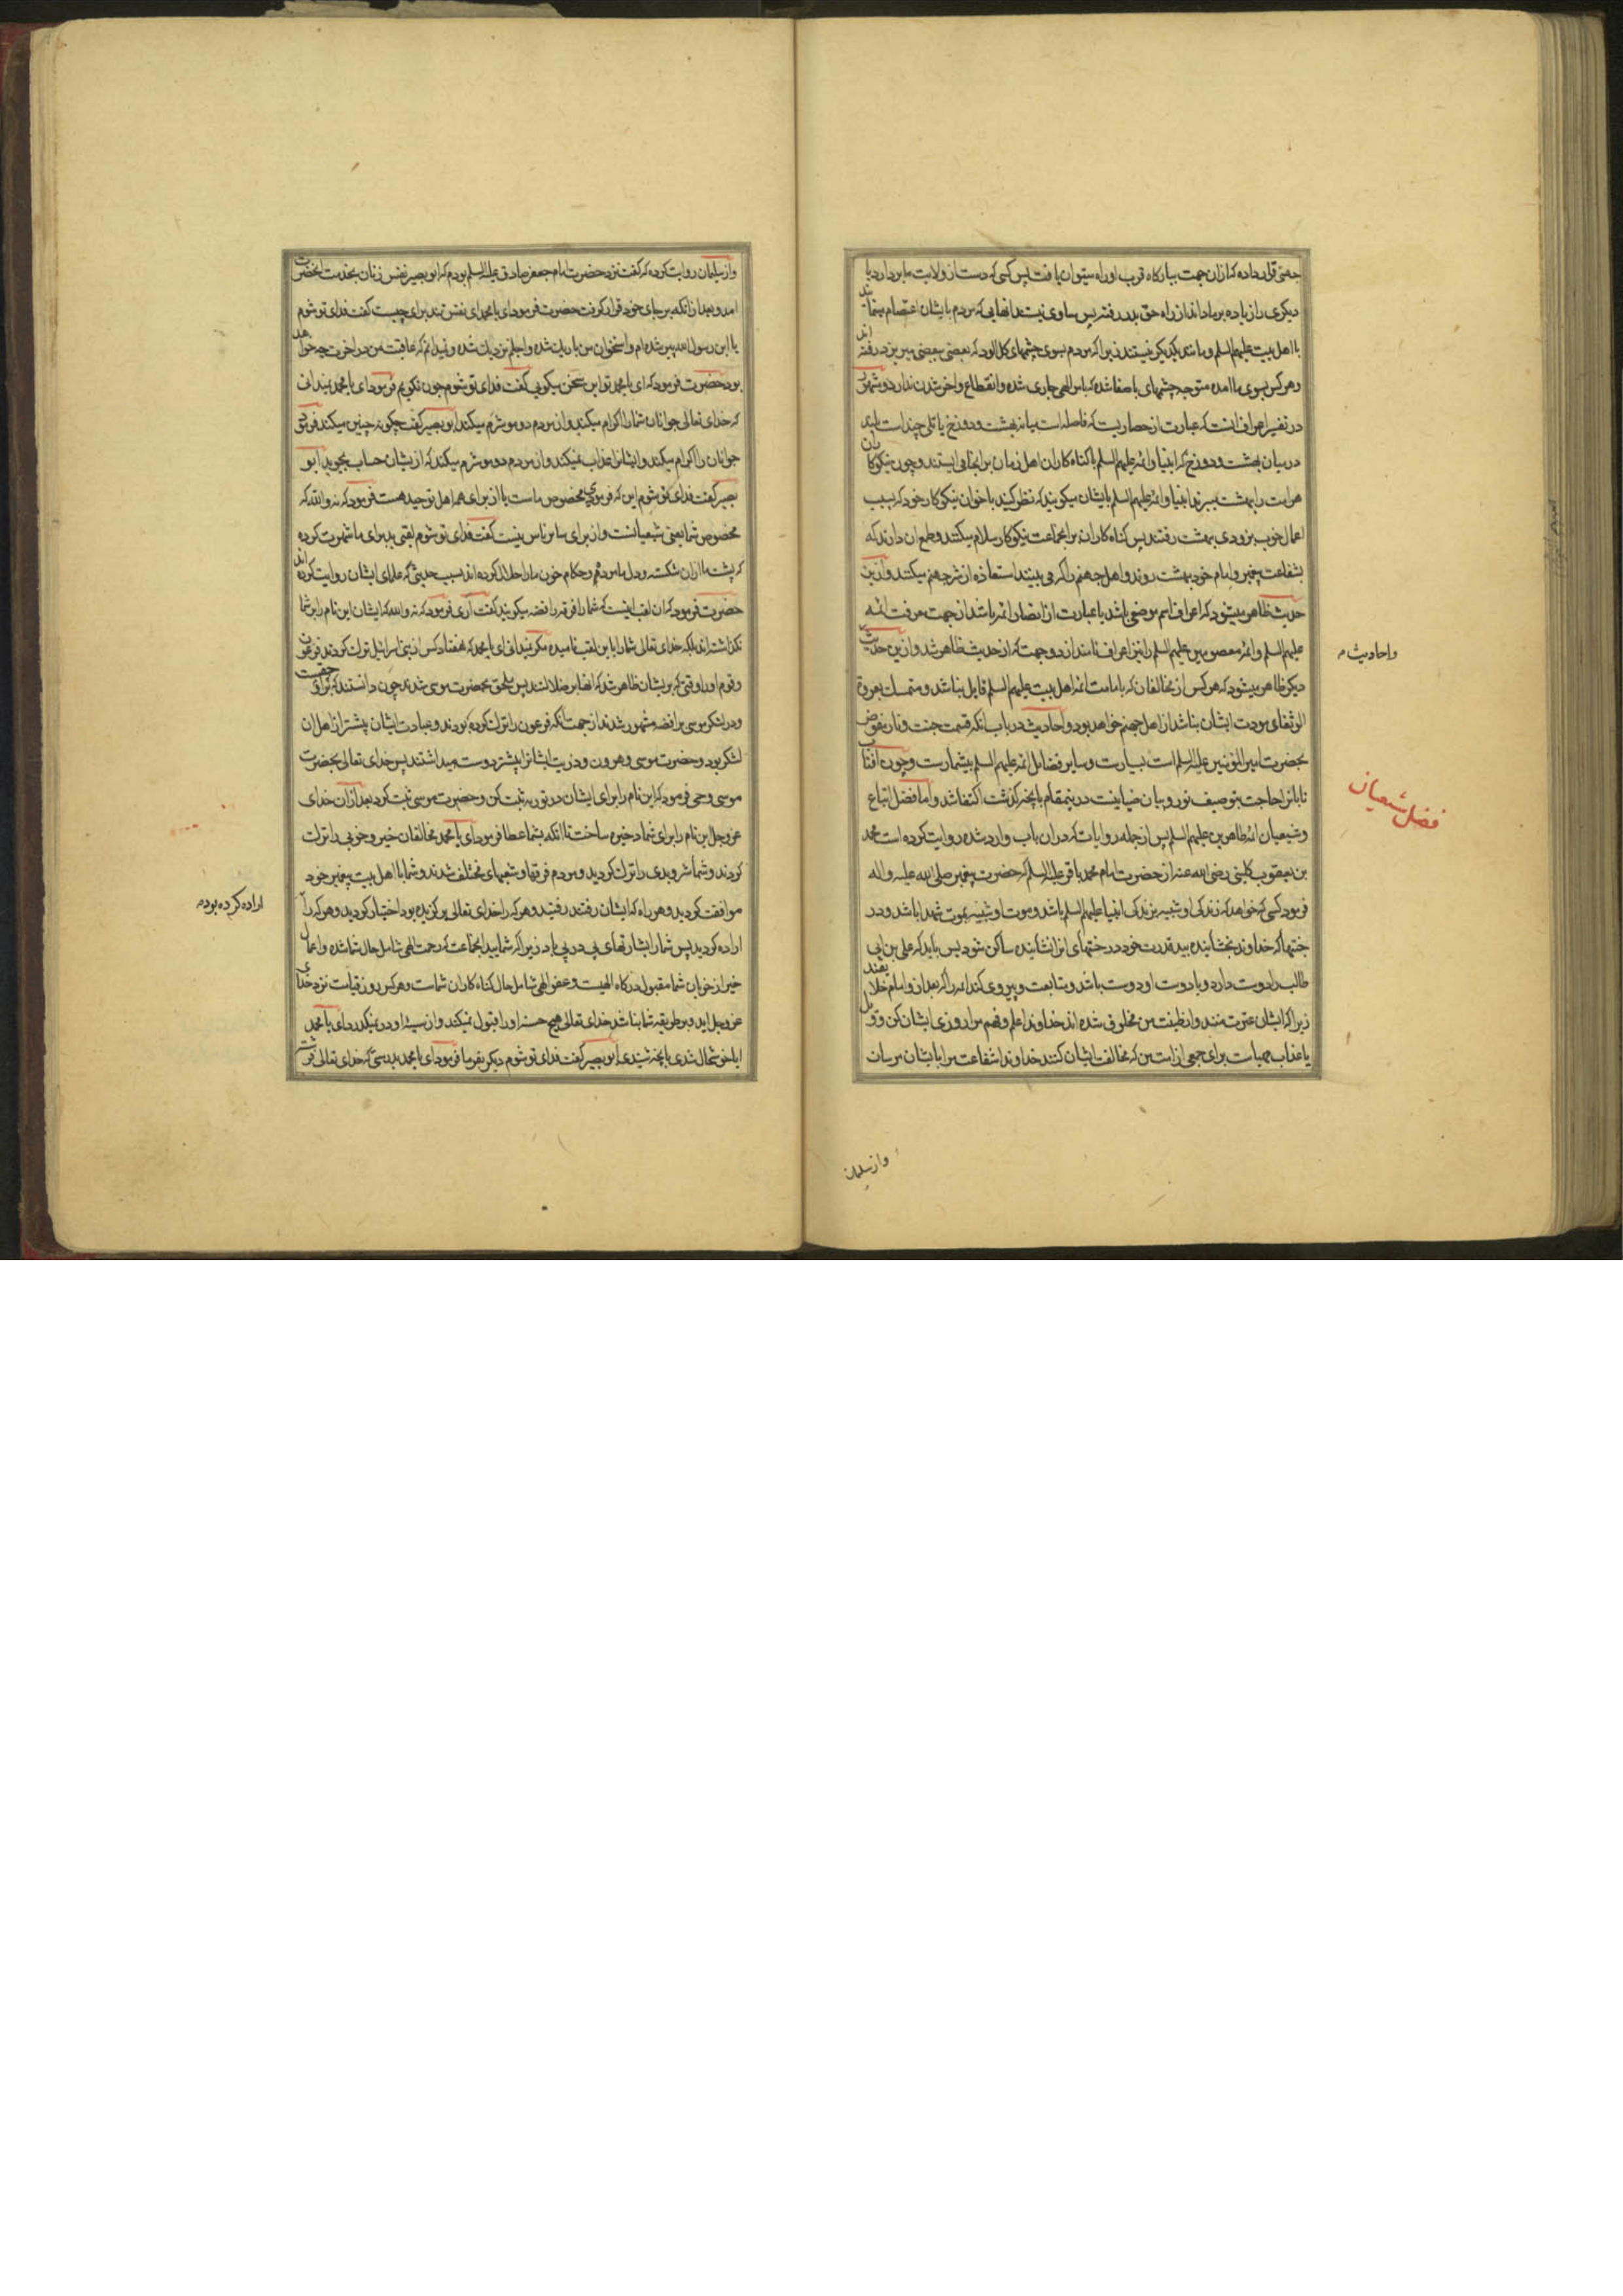 جهتی قرار داده که ازان جهت ببارگاه قرب او راه میتوان یافت پس کسی که دست از ولایت ما بردارد یا
دیگری را زیاده بر ما داند از راه حق بدر رفته پس مساوی نیستند انهایی که مردم بایشان اعتصام مینمایند
با اهل بیت علیهم السلم و مانند یکدیگر نیستند زیرا که مردم بسوی چشمهای گل الود که بعضی ببعضی میریزد رفته اند
و هر کس بسوی ما امده متوجه چشمهای با صفا شده که بامر الهی جاری شده و انقطاع و اخر شدن ندارد و مشهور
در تفسیر اعراف انست که عبارت از حصاریست که فاصله است میانه بهشت و دوزخ یا تلی چند است
در میان بهشت و دوزخ که انبیا و ائمه علیهم السلم با کناه کاران اهل زمان بر انجا می ایستند و چون نیکوکاران
هر امت را بهشت میبرند انبیا و ائمه علیهم السلم بایشان میکویند که نظر کنید باخوان نیکوکار خود که بسبب
اعمال خوب بزودی بهشت رفتند پس کناه کاران بر انجماعت نیکوکار سلام میکنند و طمع ان دارند که
بشفاعت پیغمبر و امام خود بهشت روند و اهل جهنم را که می بینند استعاذه از شر جهنم میکنند و ازین
حدیث ظاهر میشود که اعراف اسم موضعی باشد یا عبارت از انصار ائمه باشد از جهت معرفت ائمه
علیهم السلم و ائمه معصومین علیهم السلم را نیز اعراف نامند از دو جهت که از حدیث ظاهر شد و ازین حدیث
دیگر ظاهر میشود که هر کس از مخالفان که بامامت ائمه اهل بیت علیهم السلم قایل نباشد و متمسک بعروة
الوثقای مودت ایشان نباشد از اهل جهنم خواهد بود و احادیث در باب انکه قسمت جنت و نار مفوض
بحضرت امیر المؤمنین علیه السلم است بسیارست و سایر فضایل ائمه علیهم السلم بیشمارست و چون افتاب
تابان را حاجت بتوصیف نور و بیان ضیا نیست درینمقام بانچه کذشت اکتفا شد و اما فضل اتباع
و شیعیان ائمه طاهرین علیهم السلم پس از جمله روایات که دران باب وارد شده روایت کرده است محمد
بن یعقوب کلینی رضی الله عنه از حضرت امام محمد باقر علیه السلم که حضرت پیغمبر صلی الله علیه و اله
فرمود کسی که خواهد که زندکی او شبیه بزندکی انبیا علیهم السلم باشد و موت او شبیه بموت شهدا باشد و در
جنتها که خداوند بخشاینده بید قدرت خود درختهای انرا نشانیده ساکن شود پس باید که علی بن ابی
طالب را دوست دارد و با دوست او دوست باشد و متابعت و پیروی کند ائمه را که بعد از و امام خلایقند
زیرا که ایشان عترت منند و از طینت من مخلوق شده اند خداوندا علم و فهم مرا روزی ایشان کن و ویل
یا عذاب مهیاست برای جمعی از امت من که مخالفت ایشان کنند خداوندا شفاعت مرا بایشان مرسان
و احادیث
فضل شیعیان
و از سلیمان
و از سلیمان روایت کرده که گفت نزد حضرت امام جعفر صادق علیه السلم بودم که ابو بصیر نفس زنان بخدمت انحضرت
امد و بعد از انکه بر جای خود قرار گرفت حضرت فرمود ای با محمد ای نفس تند برای چیست گفت فدای تو شوم
یا ابن رسول الله پیر شده ام و استخوان من باریک شده و اجلم نزدیک شده و نمیدانم که عاقبت من در اخرت چه خواهد
بود حضرت فرمود که ای با محمد تو این سخن میکویی گفت فدای تو شوم چون نکویم فرمود ای با محمد نمیدانی
که خدای تعالی جوانان شما را اکرام میکند و از مردم دو مو شرم میکند ابو بصیر گفت چکونه چنین میکند فرمود
جوانان را اکرام میکند و ایشانرا عذاب نمیکند و از مردم دو مو شرم میکند که از یشان حساب بجوید ابو
بصیر گفت فدای تو شوم این که فرمودی مخصوص ماست یا از برای همه اهل توحید هست فرمود که نه و الله که
مخصوص شما یعنی شیعیانست و از برای سایر ناس نیست گفت فدای تو شوم لقبی بد برای ما شهرت کرده
که پشت ما ازان شکسته و دل ما مرده و حکام خون ما را حلال کرده اند بسبب حدیثی که علمای ایشان روایت کرده اند
حضرت فرمود که ان لقب اینست که شما را فرقه رافضه میکویند گفت اری فرمود که نه و الله که ایشان این نام را بر شما
نکذاشته اند بلکه خدای تعالی شما را باین لقب نامیده مگر نمیدانی ای با محمد که هفتاد کس از بنی اسرائیل ترک کردند فرعون
و قوم او را وقتی که بریشان ظاهر شد که انها بر ضلالتند پس ملحق بحضرت موسی شدند چون دانستند که بر حقست
و در لشکر موسی برافضه مشهور شدند از جهت انکه فرعون را ترک کرده بودند و عبادت ایشان بیشتر از اهل ان
لشکر بود و حضرت موسی و هرون و ذریت ایشانرا بیشتر دوست میداشتند پس خدای تعالی بحضرت
موسی وحی فرمود که این نام را برای ایشان در توریة ثبت کن و حضرت موسی ثبت کرد بعد ازان خدای
عز و جل این نام را برای شما ذخیره ساخت تا انکه بشما عطا فرمود ای با محمد مخالفان خیر و خوبی را ترک
کردند و شما شر و بدی را ترک کردید و مردم فرقها و شعبهای مختلف شدند و شما با اهل بیت پیغمبر خود
موافقت کردید و هر راه که ایشان رفتند رفتید و هر که را خدای تعالی برکزیده بود اختیار کردید و هر که را
اراده کردید پس شما را بشارتهای پی در پی باد زیرا که شمایید انجماعت که رحمت الهی شامل حال شما شده و اعمال
خیر از خوبان شما مقبول درکاه الهیت و عفو الهی شامل حال کناه کاران شماست و هر کس روز قیامت نزد خدای
عز و جل اید و بر طریقه شما نباشد خدای تعالی هیچ حسنه او را قبول نمیکند و از سیئه او در نمیکذرد ای با محمد
ایا خوشحال شدی بانچه شنیدی ابو بصیر گفت فدای تو شوم دیگر بفرما فرمود ای با محمد بدرستی که خدای تعالی فرشته
اراده کرده بود